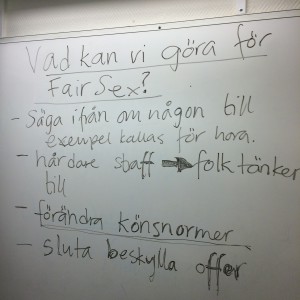 Vad kan vi göra för
Fair Sex?
- Säga ifrån om någon till
exempel kallas för hora.
- hårdare staff → folk tänker
till
- förändra könsnormer
- sluta beskylla offer